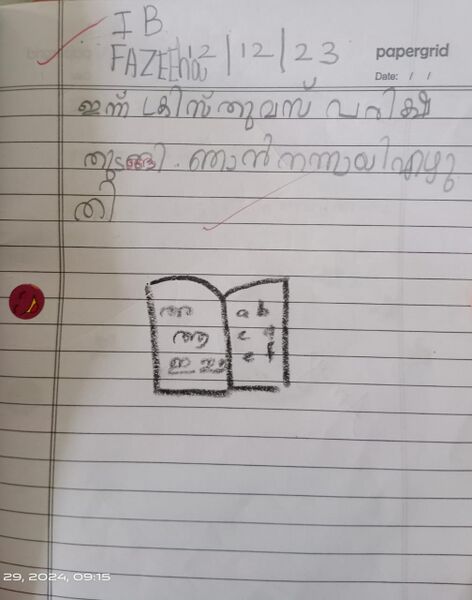 I B
FAZEEha 12/12/23
papergrid
Date: / /
ഇന്ന് ക്രിസ്തുമസ് പരീക്ഷ
തുടങ്ങി. ഞാൻ നന്നായി എഴു
തി
അ a b
ആ c d
ഇ ഈ e f
29, 2024, 09:15